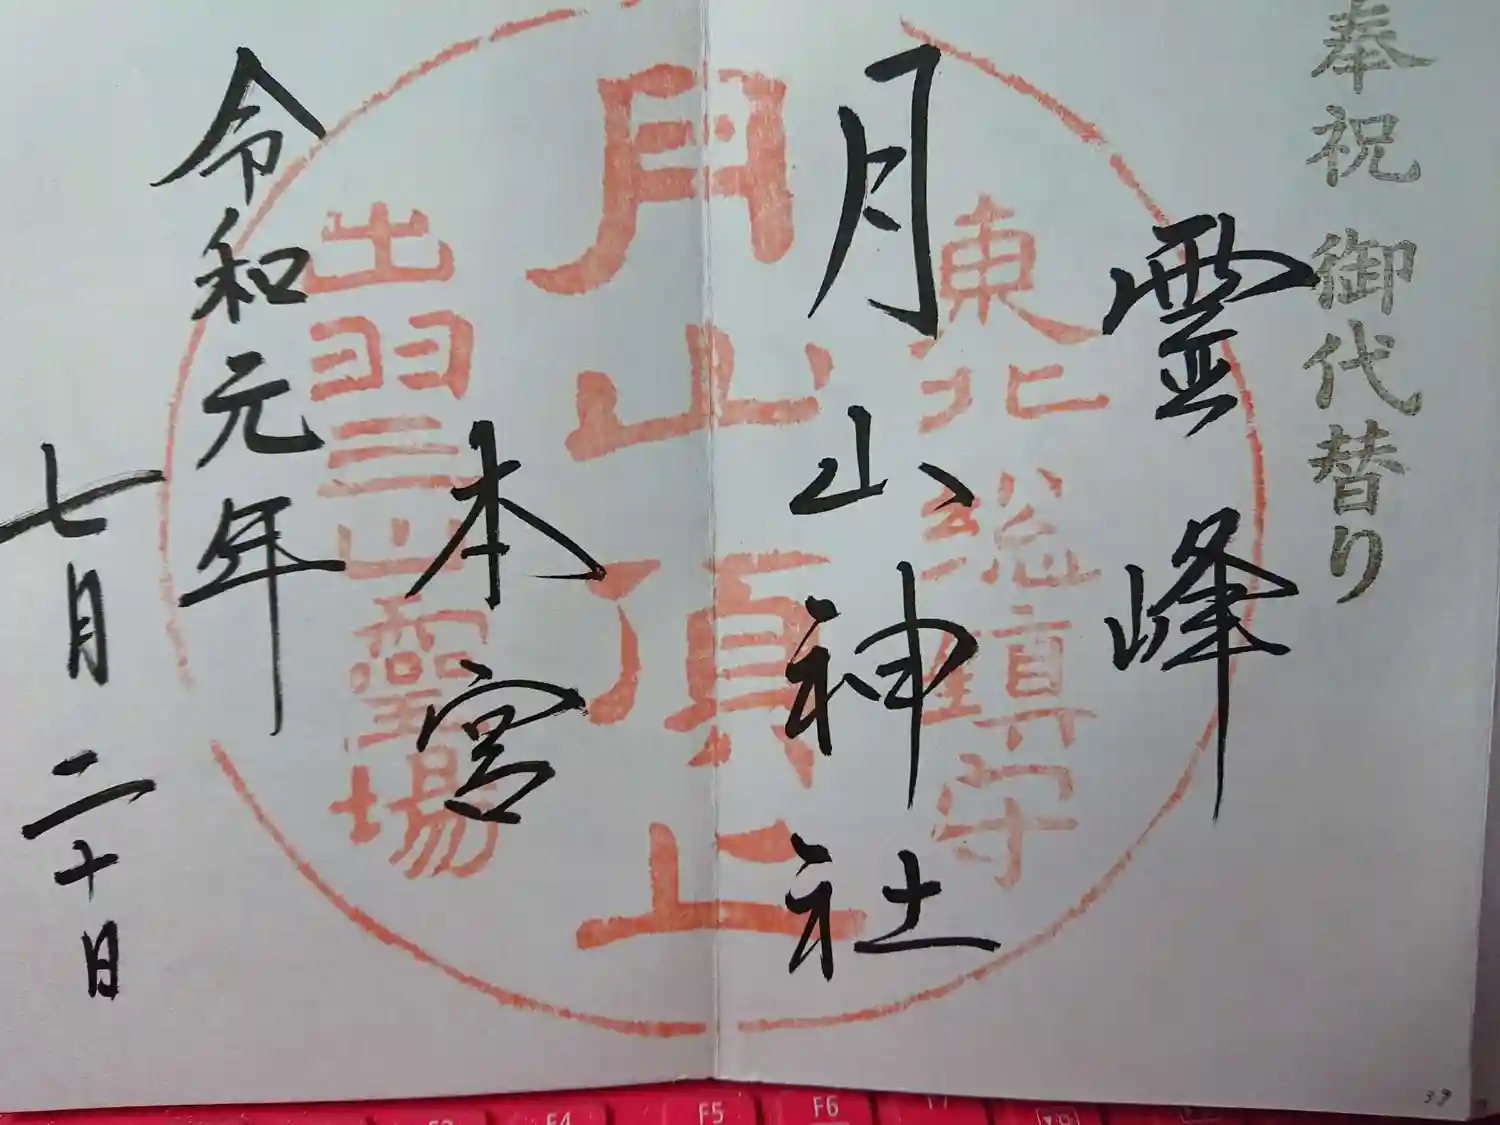 奉祝 御代替り
霊峰
東北総鎮守
月山神社
月山頂上
本宮
出羽三山霊場
令和元年
七月二十日
F4
F5
F6
F7
39